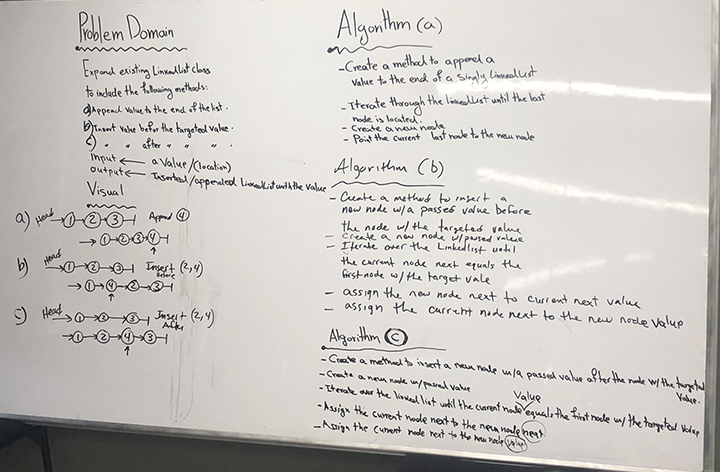 Problem Domain
Expand existing LinkedList class
to include the following methods:
a) Append value to the end of the list.
b) Insert value befor the targeted value.
c) " " after " " " "
Input ← a Value/(location)
output ← Inserted/appended LinkedList with the value
Visual
a) Head → 1 → 2 → 3 Append 4
→ 1 → 2 → 3 → 4
b) Head → 1 → 2 → 3 Insert Before (2,4)
→ 1 → 4 → 2 → 3
c) Head → 1 → 2 → 3 Insert After (2,4)
→ 1 → 2 → 4 → 3
Algorithm (a)
- Create a method to append a
value to the end of a singly LinkedList
- Iterate through the linkedList until the last
node is located.
- Create a new node
- Point the current last node to the new node
Algorithm (b)
- Create a method to insert a
new node w/a passed value before
the node w/ the targeted value
- Create a new node w/passed value
- Iterate over the Linkedlist until
the current node next equals the
first node w/the target vale
- assign the new node next to current next value
- assign the current node next to the new node value
Algorithm (c)
- Create a method to insert a new node w/a passed value after the node w/ the targeted
Value.
- Create a new node w/ passed value
- Iterate over the linked list until the current node Value equals the first node w/ the targeted value
- Assign the current node next to the new node next
- Assign the current node next to the new node value